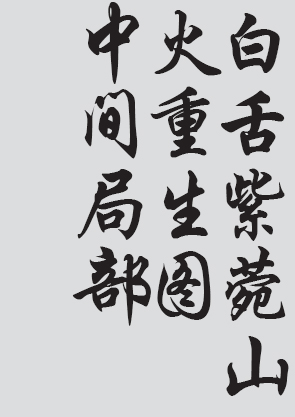 白舌紫菀山
火重生图
中间局部